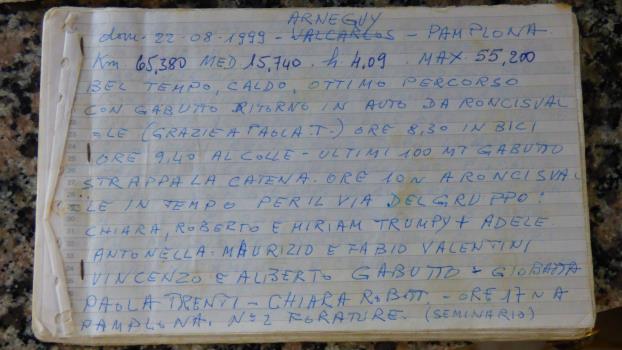 ARNEGUY
dom. 22-08-1999 - VALCARLOS - PAMPLONA.
Km 65,380 MED 15,740. h 4,09. MAX. 55,200
BEL TEMPO, CALDO, OTTIMO PERCORSO
CON GABUTTO RITORNO IN AUTO DA RONCISVAL
=LE (GRAZIE A PAOLA T.) ORE 8,30 IN BICI
ORE 9,40 AL COLLE - ULTIMI 100 MT GABUTTO
STRAPPA LA CATENA. ORE 10 A RONCISVAL
LE IN TEMPO PER IL VIA DEL GRUPPO:
CHIARA, ROBERTO E MIRIAM TRUMPY + ADELE
ANTONELLA - MAURIZIO E FABIO VALENTINI
VINCENZO E ALIBERTO GABUTTO - GIOBATTA
PAOLA TRENTI - CHIARA ROBOT. - ORE 17 A
PAMPLONA. N° 2 FORATURE. (SEMINARIO)